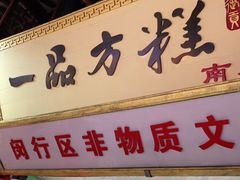 一品方糕
南
闵行区非物质文